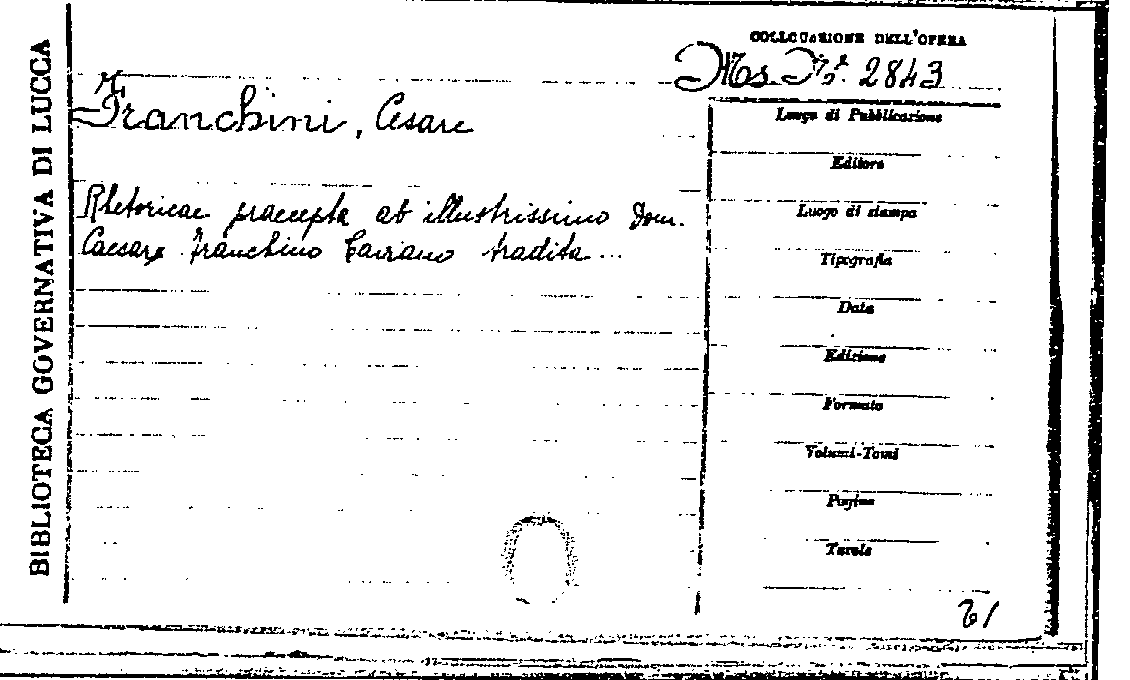 BIBLIOTECA GOVERNATIVA DI LUCCA
COLLOCAZIONE DELL'OPERA
Ms. N°. 2843
Franchini, Cesare
Rhetoricae praecepta ab illustrissimo Dom.
Caesare Franchino tradita...
Luogo di Pubblicazione
Editore
Luogo di stampa
Tipografia
Data
Edizione
Formato
Volumi-Tomi
Pagine
Tavole